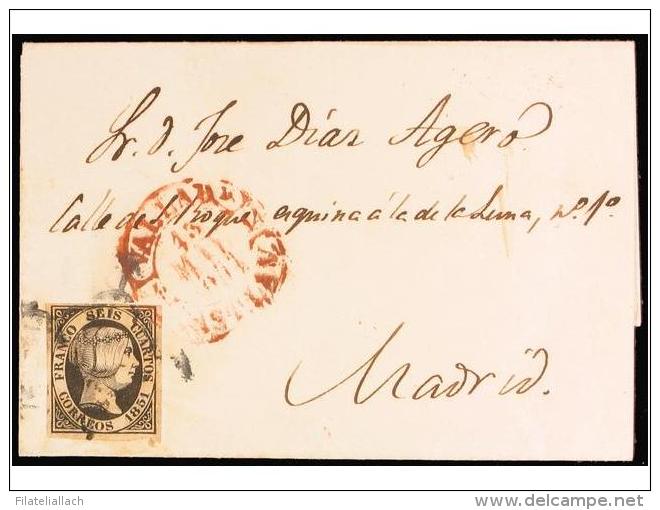 Sr. D. Jose Diaz Agero.
Calle de S. Roque esquina á la de la Luna, nº. 1º
FRANCO SEIS CUARTOS
CORREOS 1851
Madrid.
Filateliallach
delcampe.net